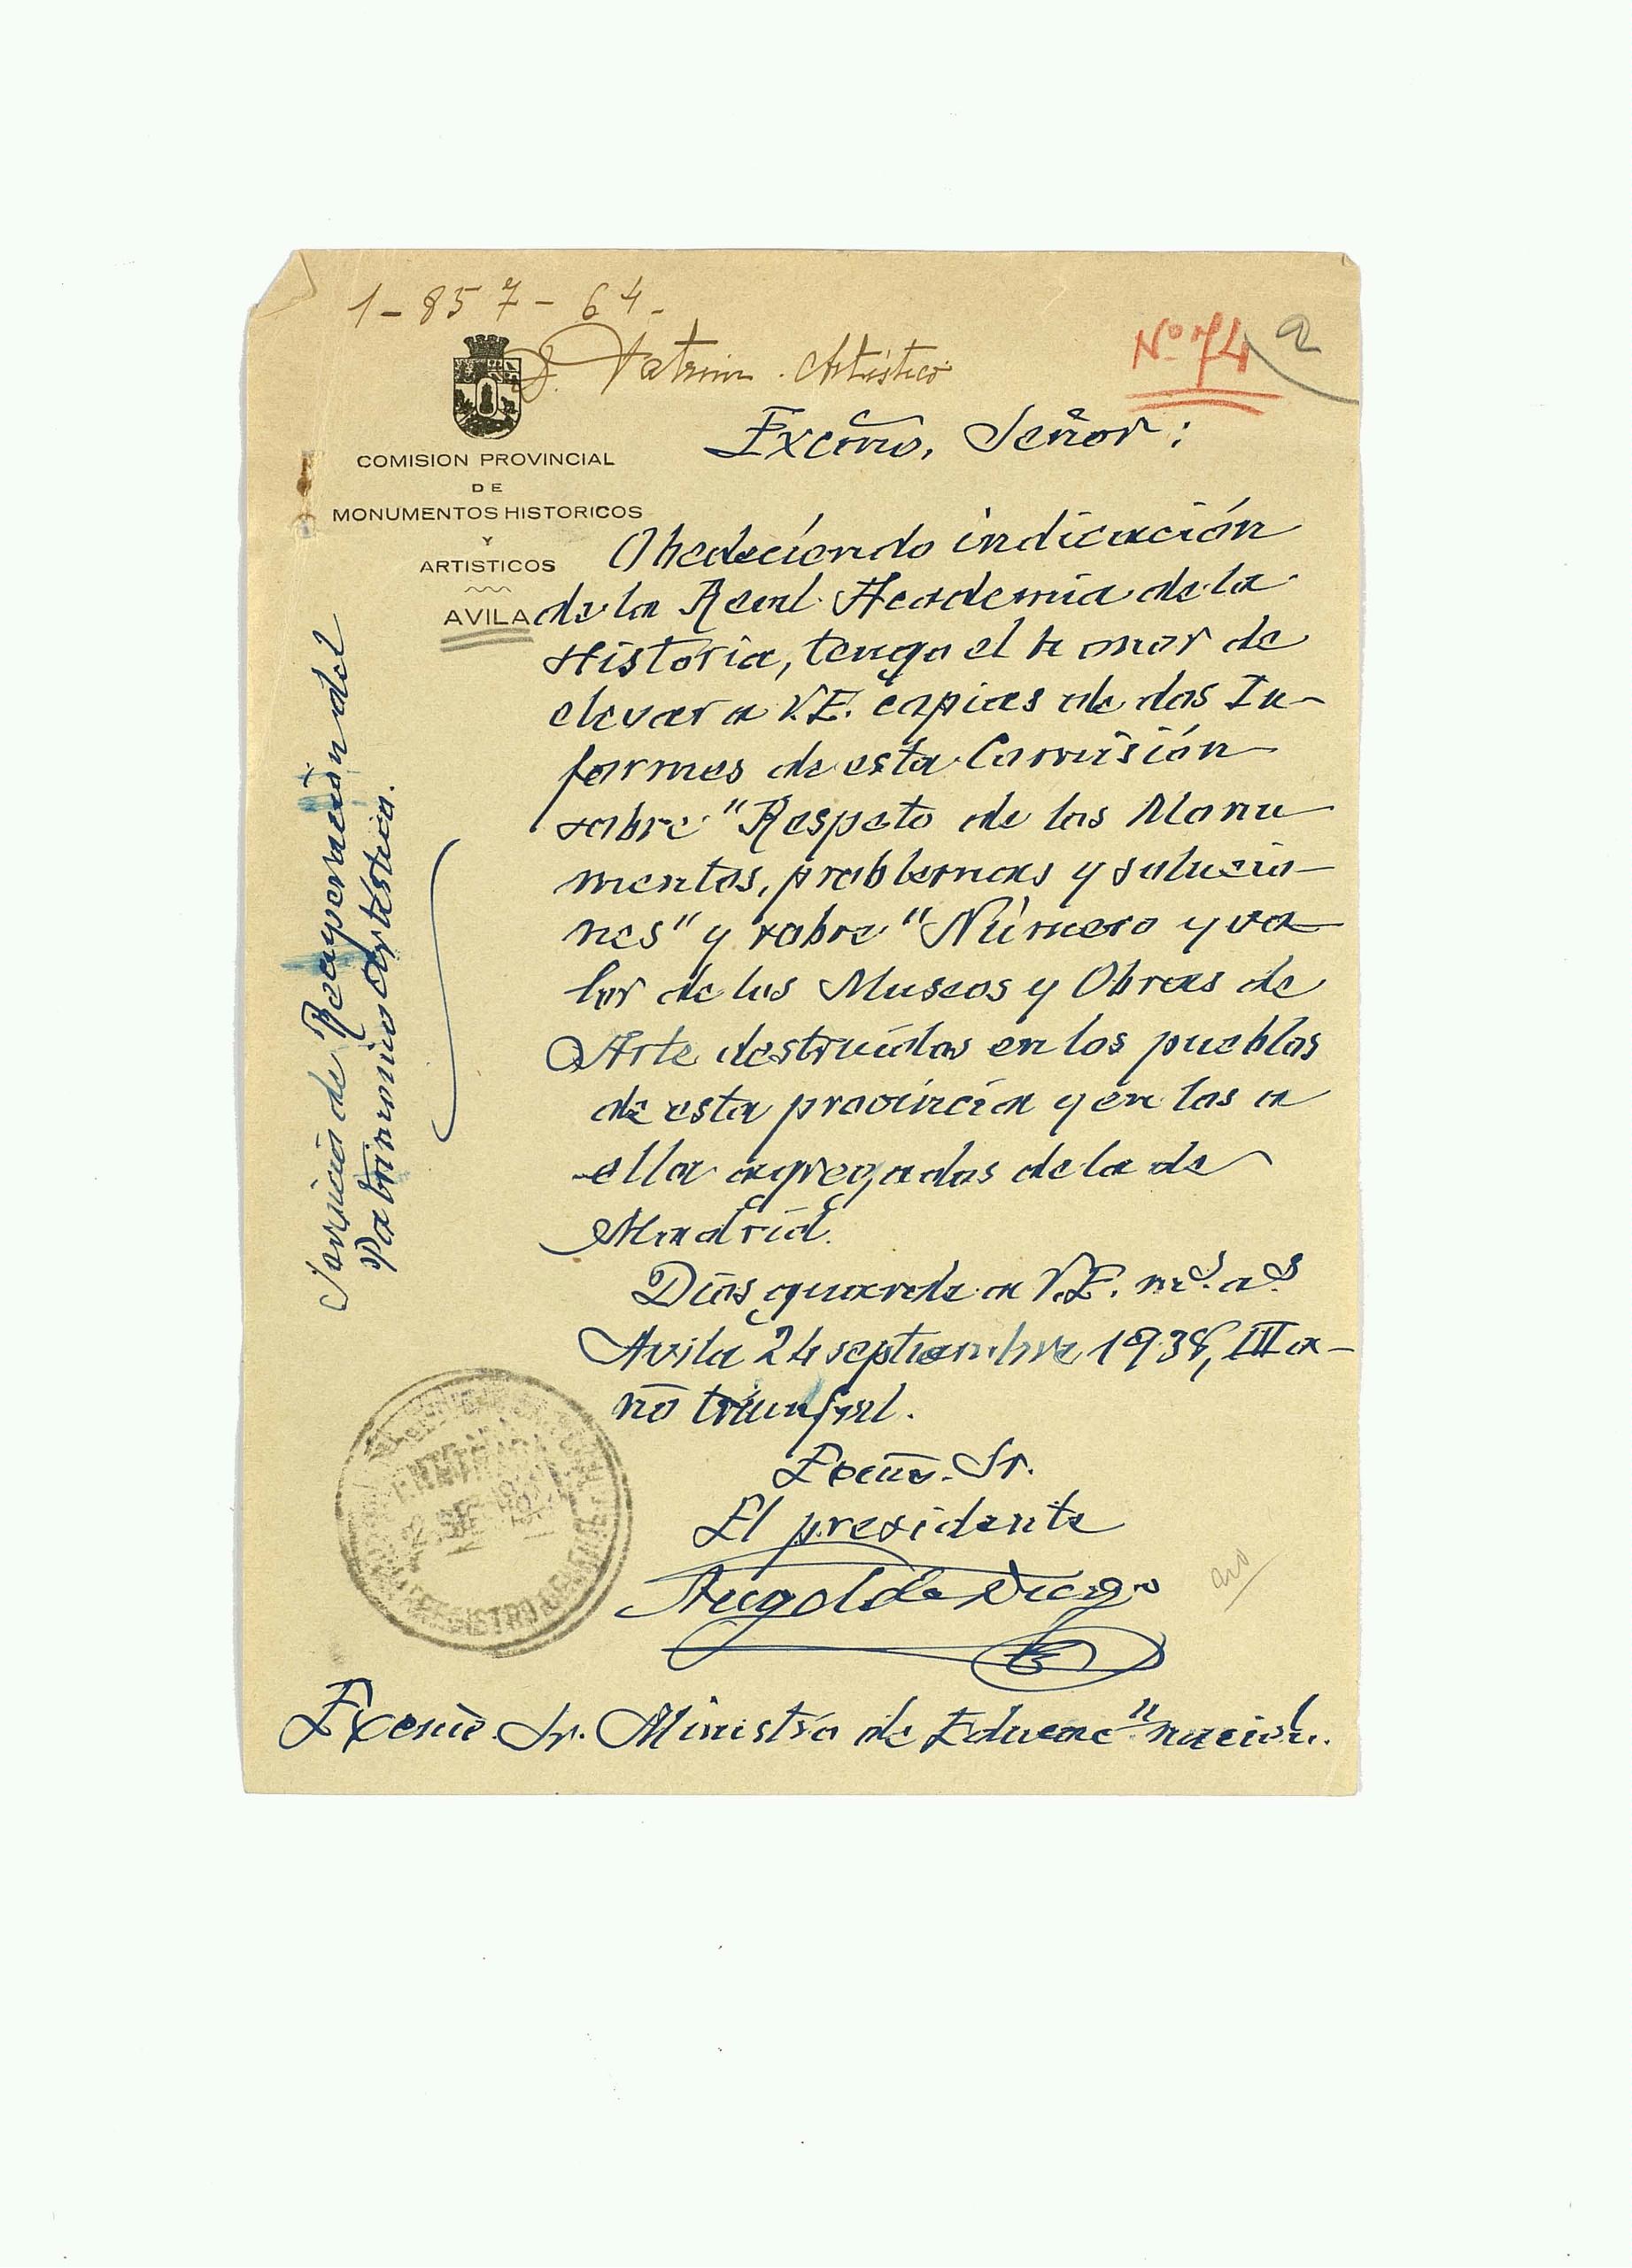 1-857-64-
D. Patrim. Artístico
Nº 74
COMISION PROVINCIAL
DE
MONUMENTOS HISTORICOS
Y
ARTISTICOS
AVILA
Excmo. Señor:
Obedeciendo indicación
de la Real Academia de la
Historia, tengo el honor de
elevar a V.E. copias de dos In-
formes de esta Comisión
sobre "Respeto de los Monu
mentos, problemas y solucio-
nes" y sobre "Número y va-
lor de los Museos y Obras de
Arte destruídos en los pueblos
de esta provincia y en los a
ella agregados de la de
Madrid.
Dios guarde a V.E. ms. as.
Avila 24 septiembre 1938, III a-
ño triunfal.
Excmo. Sr.
El presidente
Excmo. Sr. Ministro de Educacn nacional.
Servicio de Recuperación del
Patrimonio Artístico.
ENTRADA
REGISTRO GENERAL